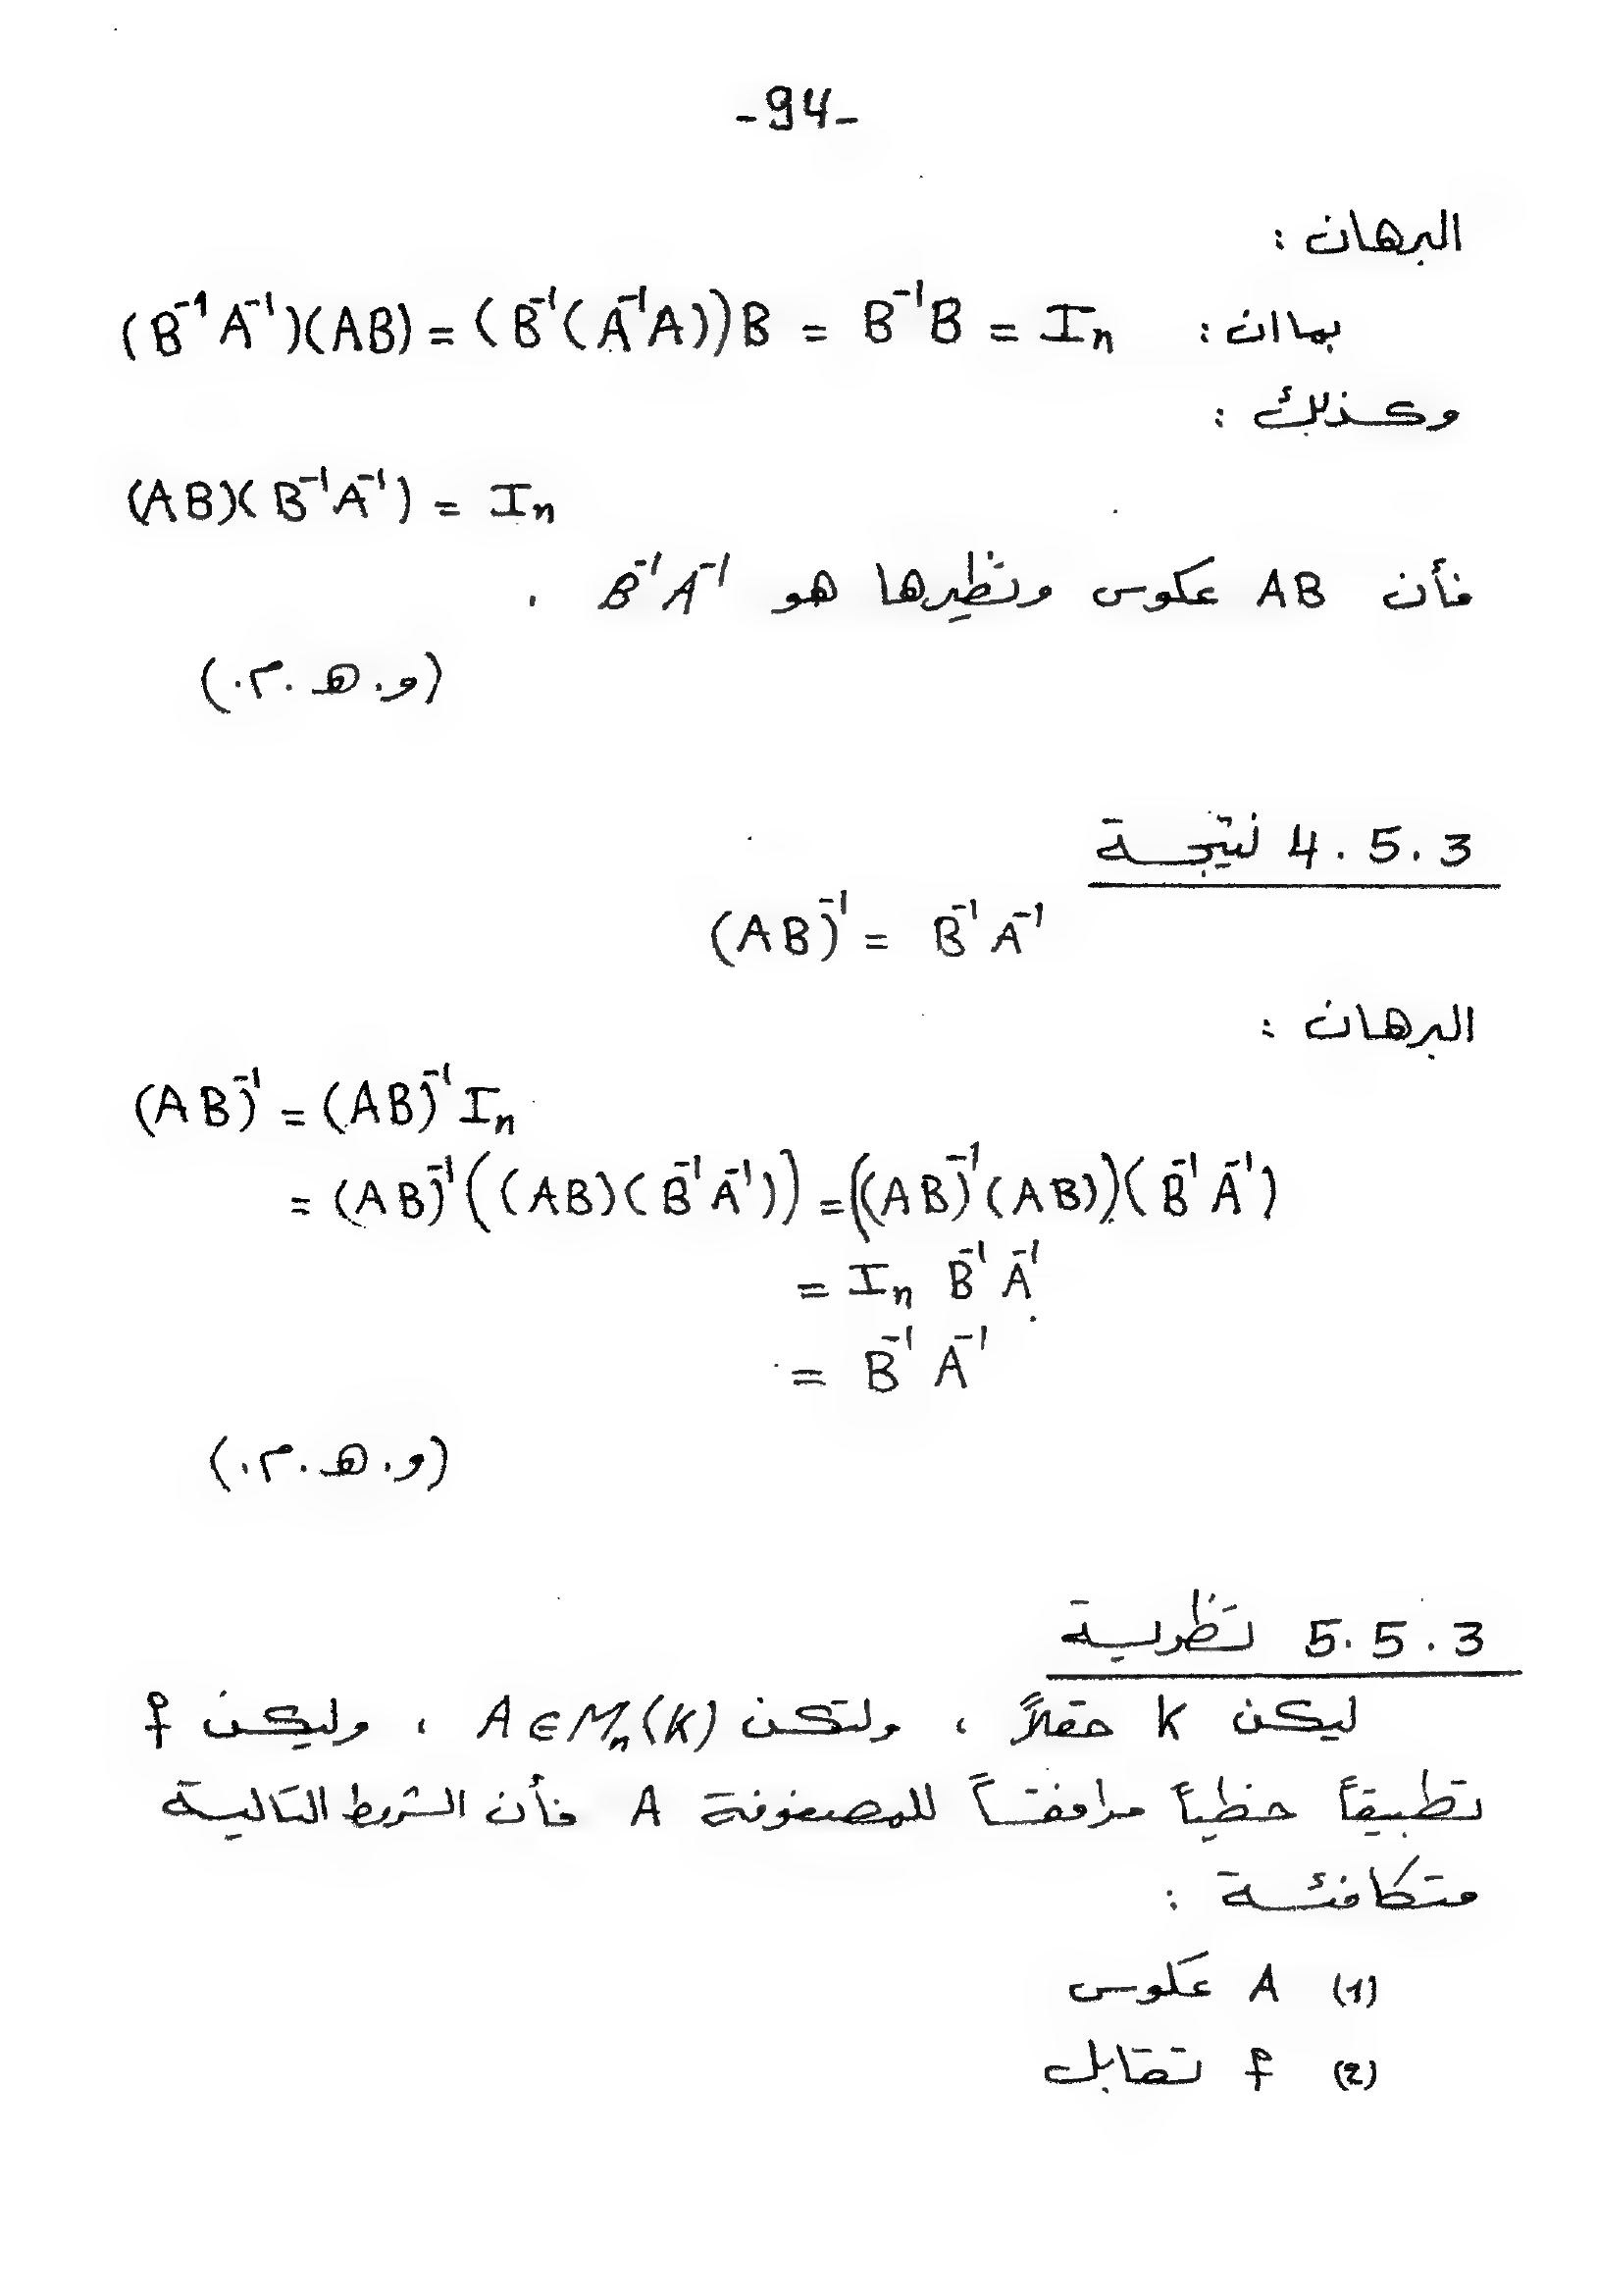 -94-
البرهان :
بما ان : (B⁻¹A⁻¹)(AB) = (B⁻¹(A⁻¹A))B = B⁻¹B = Iₙ
وكذلك :
(AB)(B⁻¹A⁻¹) = Iₙ
فأن AB عكوس ونظيرها هو B⁻¹A⁻¹ .
(و.هـ.م.)
4.5.3 نتيجة
(AB)⁻¹ = B⁻¹A⁻¹
البرهان :
(AB)⁻¹ = (AB)⁻¹Iₙ
= (AB)⁻¹((AB)(B⁻¹A⁻¹)) = ((AB)⁻¹(AB))(B⁻¹A⁻¹)
= Iₙ B⁻¹A⁻¹
= B⁻¹A⁻¹
(و.هـ.م.)
5.5.3 نظرية
ليكن K حقلاً ، ولتكن A∈Mₙ(K) ، وليكن f
تطبيقاً خطياً مرافقاً للمصفوفة A فأن الشروط التالية
متكافئة :
(1) A عكوس
(2) f تقابل